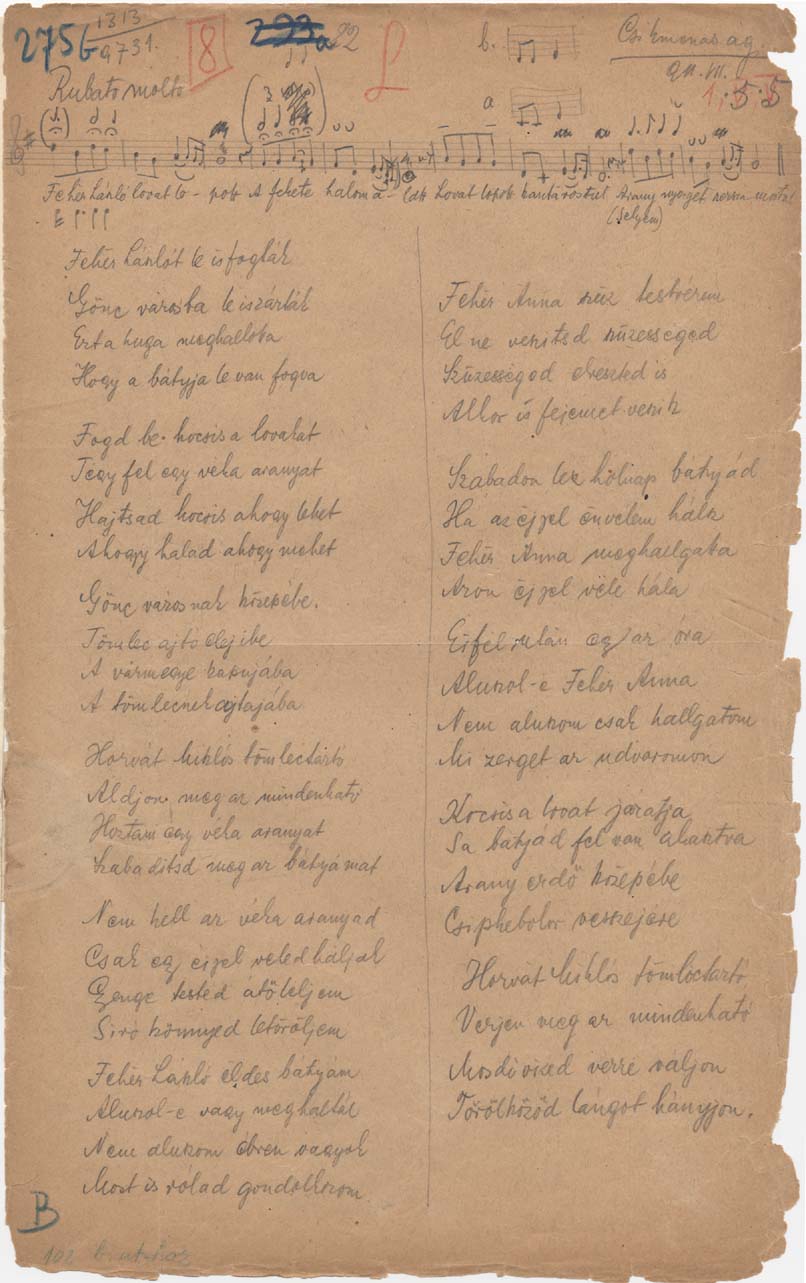 275b
1313
9731.
8
a 22
L
b.
a
Csikmenaság
911. VII.
1, 5 5
Rubato molto
3
Fehér László lovat lo - pott A fekete halom a - latt Lovat lopott kantárostul Arany nyergét
(selyem)
Fehér Lászlót le is fogták
Gönc városba be is zárták
Ezt a huga meghallota
Hogy a bátyja le van fogva
Fogd be kocsis a lovakat
Tegy fel egy véka aranyat
Hajtsad kocsis ahogy lehet
Ahogy halad ahogy mehet
Gönc városnak közepébe.
Tömlec ajtó elejibe
A vármegye kapujába
A tömlecnek ajtajába
Horvát Miklós tömlectartó
Aldjon meg az mindenható
Hoztam egy véka aranyat
Szabaditsd meg az bátyámat
Nem kell az véka aranyad
Csak egy éjjel veled háljak
Gyenge tested átöleljem
Siró könnyed letöröljem
Fehér László éldes bátyám
Aluszol-e vagy meghaltál
Nem aluszom ébren vagyok
Most is rólad gondolkozom
Fehér Anna szüz testvérem
El ne veszitsd szüzességed
Szüzességed elveszted is
Akkor is fejemet veszik
Szabadon lesz hólnap bátyád
Ha az éjjel énvelem hálsz
Fehér Anna meghallgata
Azon éjjel véle hála
Éjfél után egy az óra
Aluszol-e Fehér Anna
Nem aluszom csak hallgatom
Mi zerget az udvaromon
Kocsis a lovat járatja
Sa bátjád fel van akasztva
Arany erdő közepébe
Csiphebokor vesszejére
Horvát Miklós tömlöctartó
Verjen meg az mindenható
Mosdóvized verré valjon
Törölköződ lángot hányjon.
B